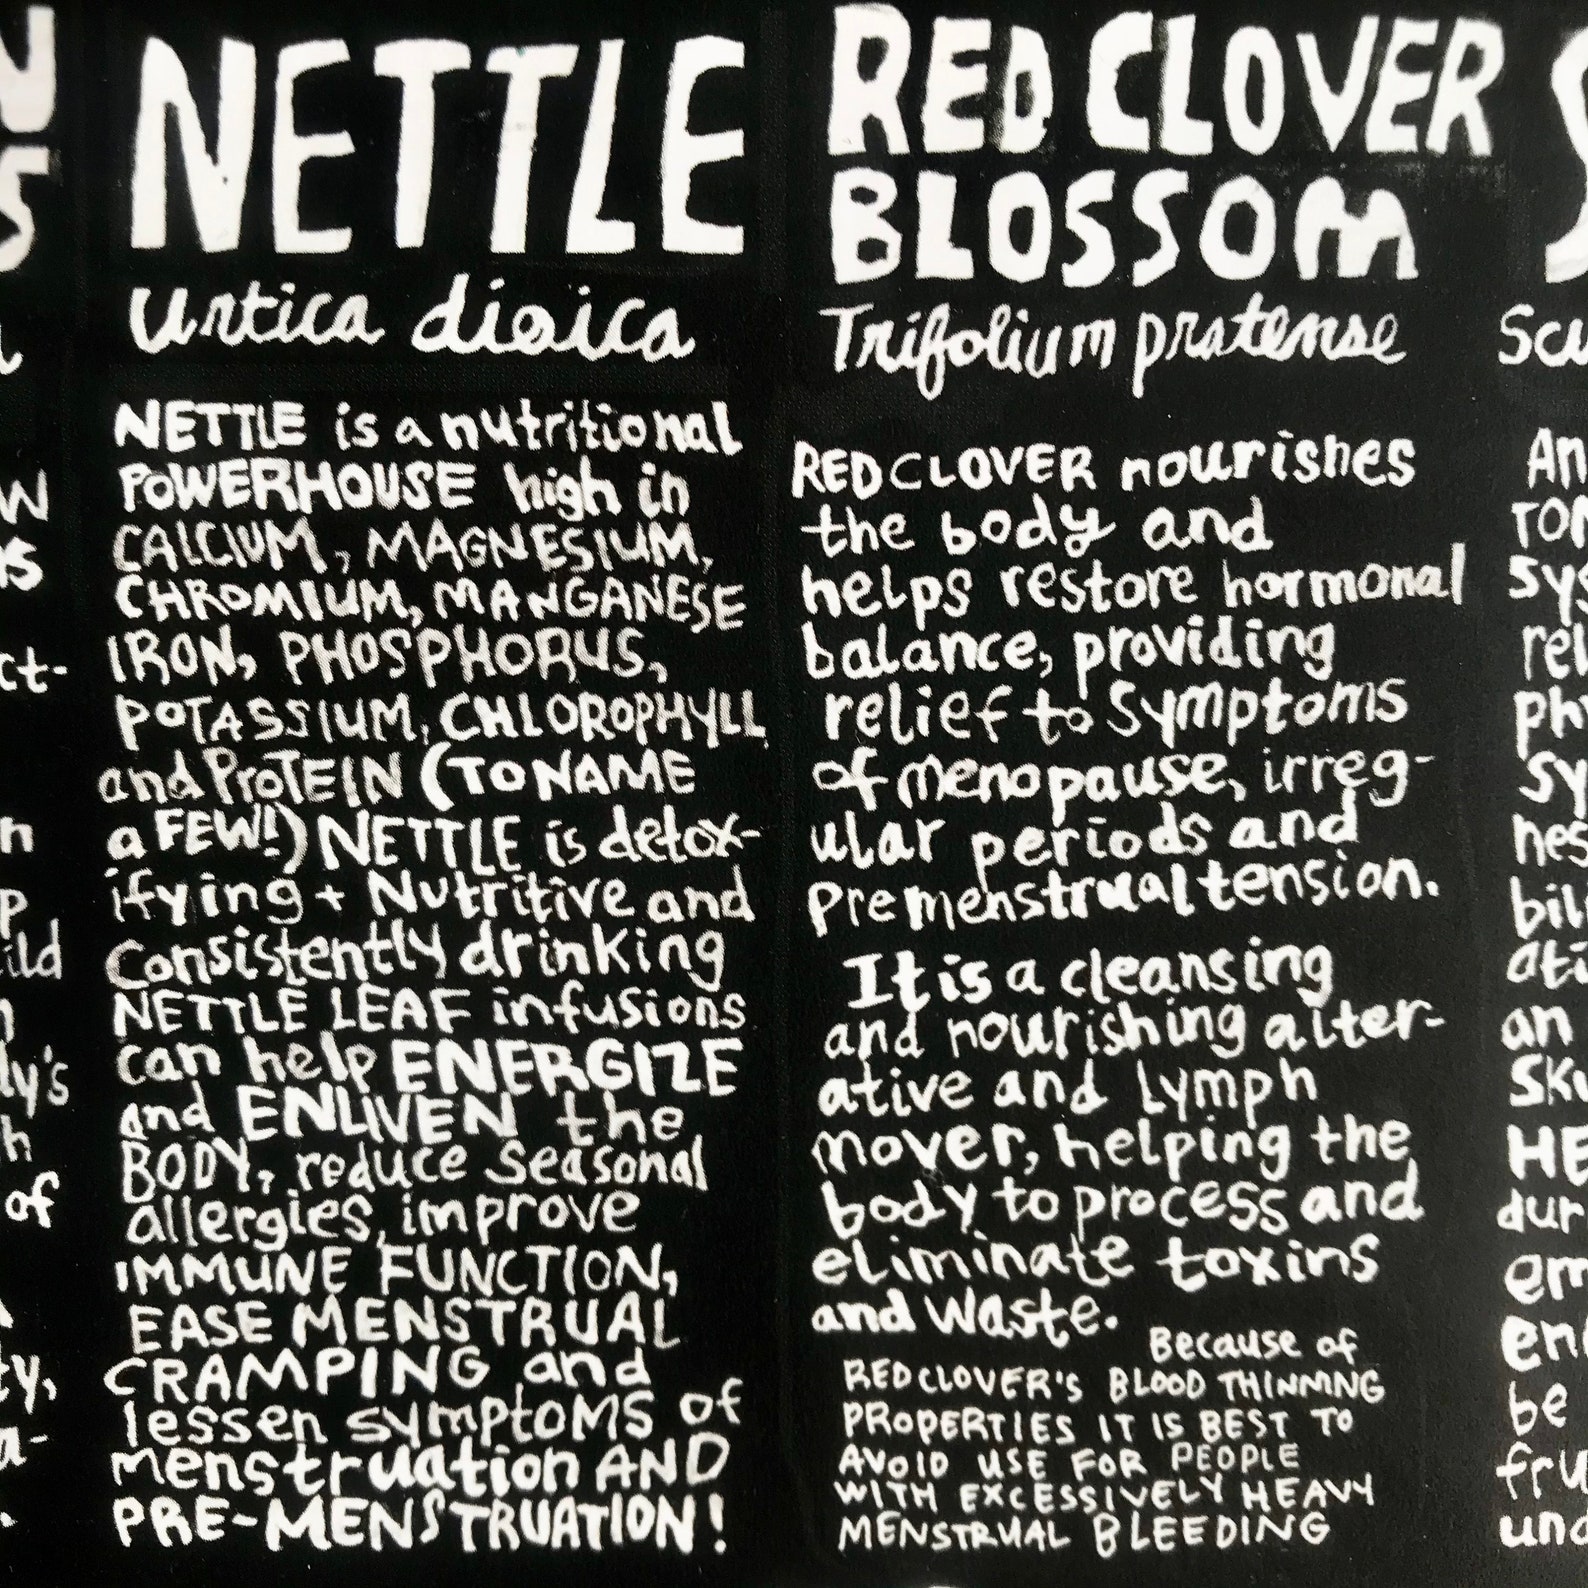 NETTLE
Urtica dioica
NETTLE is a nutritional
POWERHOUSE high in
CALCIUM, MAGNESIUM,
CHROMIUM, MANGANESE
IRON, PHOSPHORUS,
POTASSIUM, CHLOROPHYLL
and PROTEIN (TO NAME
a FEW!) NETTLE is detox-
ifying + Nutritive and
Consistently drinking
NETTLE LEAF infusions
can help ENERGIZE
and ENLIVEN the
BODY, reduce seasonal
allergies, improve
IMMUNE FUNCTION,
EASE MENSTRUAL
CRAMPING and
lessen symptoms of
menstruation AND
PRE-MENSTRUATION!
RED CLOVER
BLOSSOM
Trifolium pratense
RED CLOVER nourishes
the body and
helps restore hormonal
balance, providing
relief to symptoms
of menopause, irreg-
ular periods and
premenstrual tension.
It is a cleansing
and nourishing alter-
ative and lymph
mover, helping the
body to process and
eliminate toxins
and waste.
Because of
RED CLOVER'S BLOOD THINNING
PROPERTIES IT IS BEST TO
AVOID USE FOR PEOPLE
WITH EXCESSIVELY HEAVY
MENSTRUAL BLEEDING